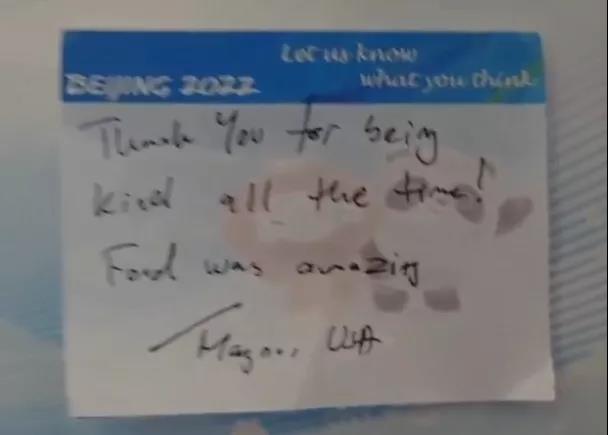 Let us know
what you think
BEIJING 2022
Thank You for being
kind all the time!
Food was amazing
USA